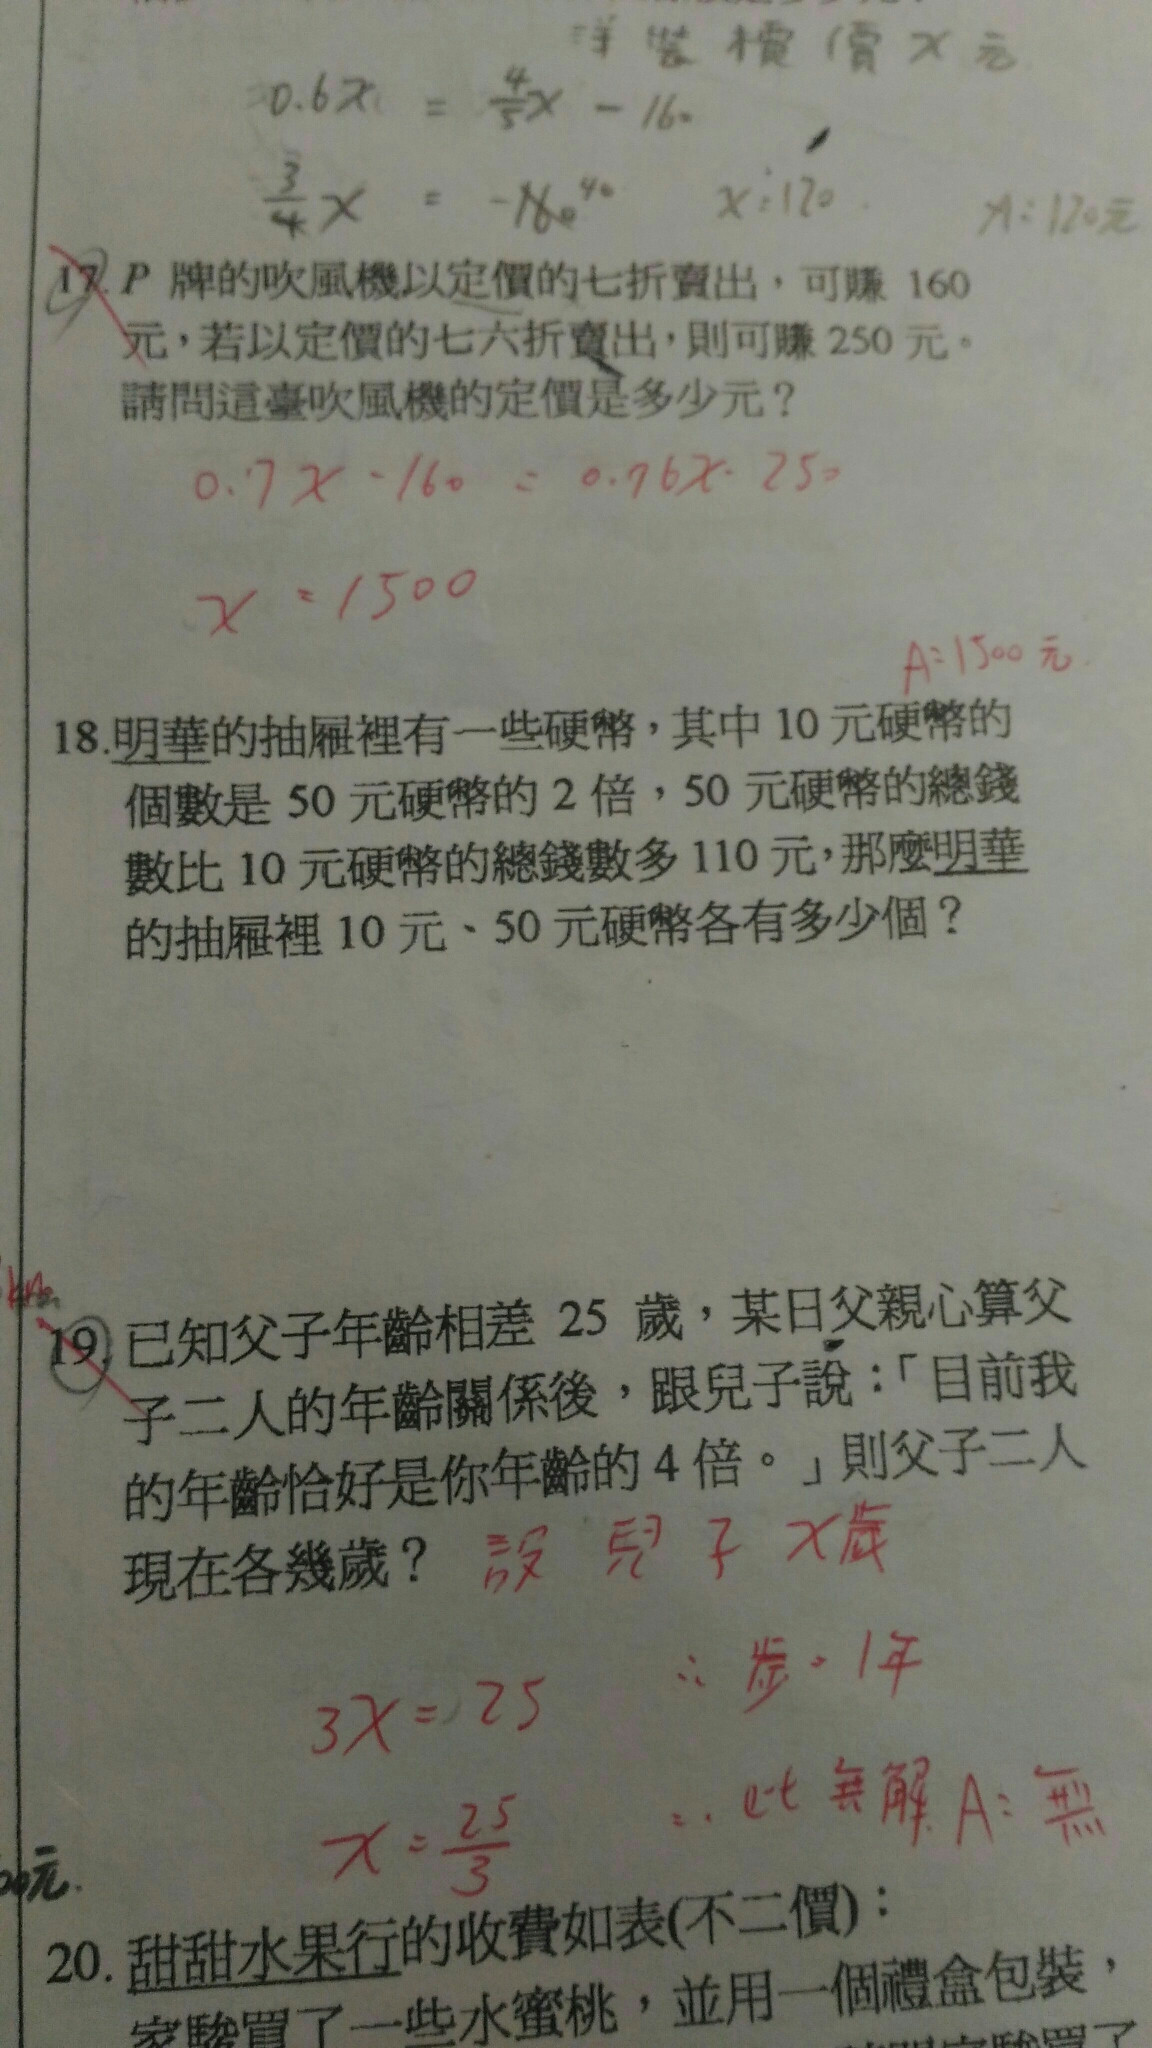 洋裝標價x元
0.6x = 4/5x - 160
3/4x = -160 40 x=120 A:120元
17. P 牌的吹風機以定價的七折賣出，可賺 160
元，若以定價的七六折賣出，則可賺 250 元。
請問這臺吹風機的定價是多少元？
0.7x - 160 = 0.76x - 250
x = 1500
A=1500元.
18.明華的抽屜裡有一些硬幣，其中 10 元硬幣的
個數是 50 元硬幣的 2 倍，50 元硬幣的總錢
數比 10 元硬幣的總錢數多 110 元，那麼明華
的抽屜裡 10 元、50 元硬幣各有多少個？
19. 已知父子年齡相差 25 歲，某日父親心算父
子二人的年齡關係後，跟兒子說：「目前我
的年齡恰好是你年齡的 4 倍。」則父子二人
現在各幾歲？ 設兒子x歲
3x = 25 ∴歲=1年
x = 25/3 ∴此無解 A:無
00元.
20. 甜甜水果行的收費如表(不二價)：
家駿買了一些水蜜桃，並用一個禮盒包裝，